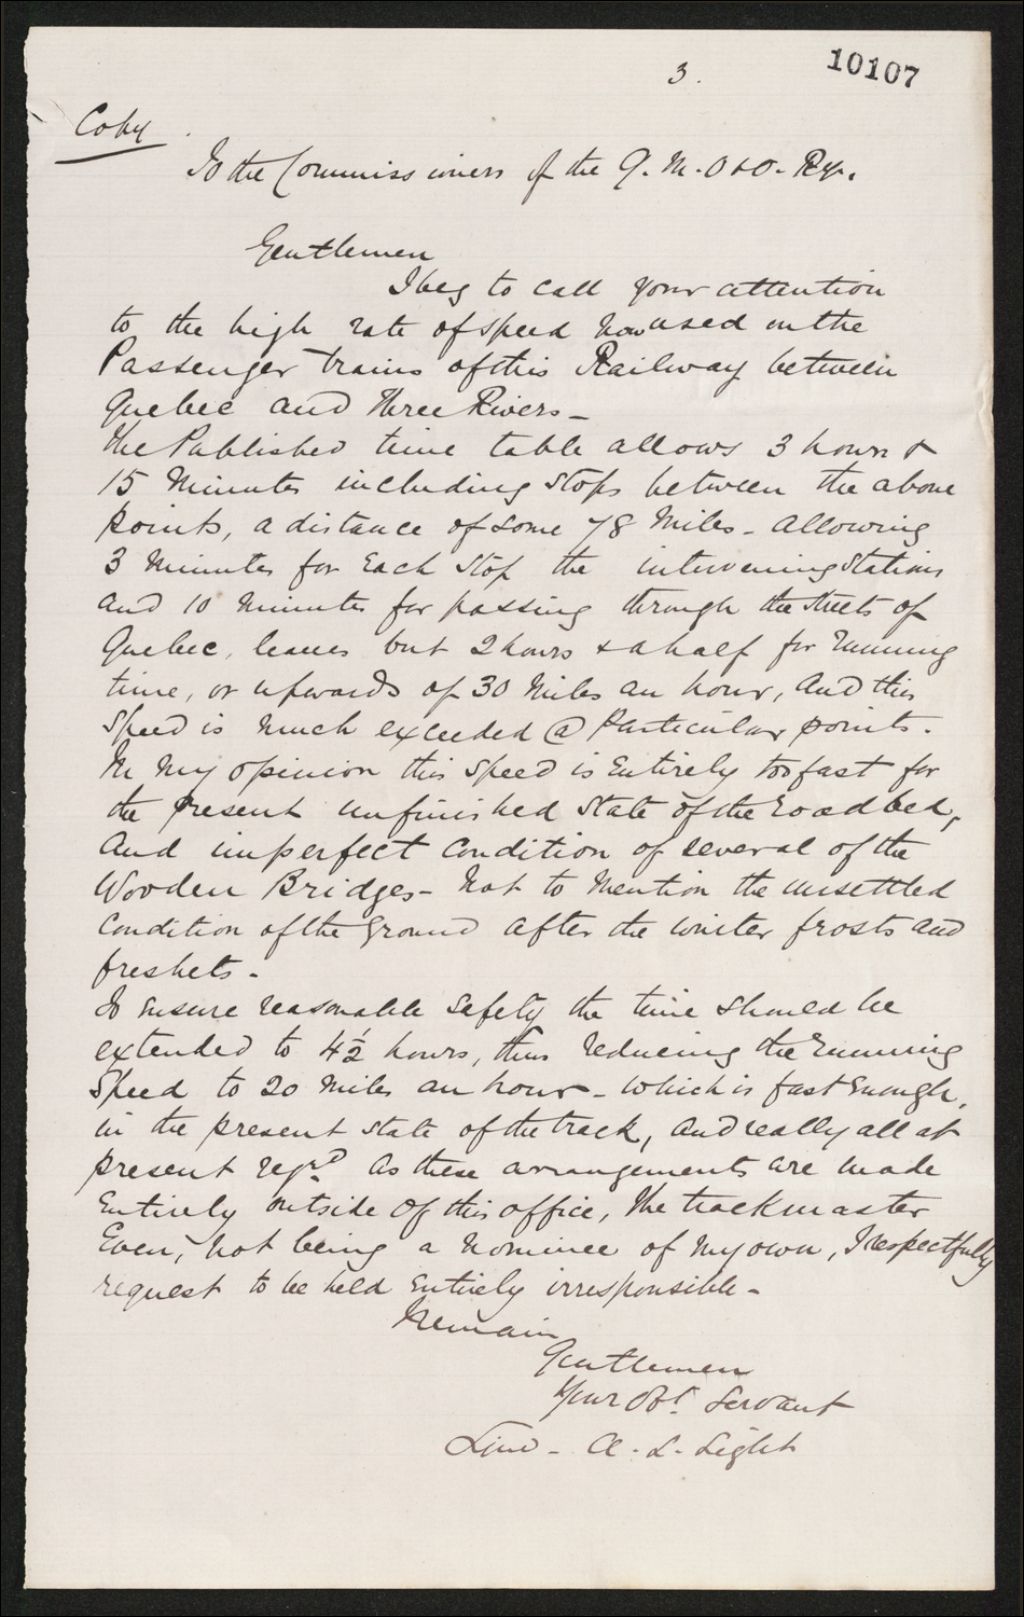 3.
10107
Copy
To the Commissioners of the Q. M. O & O. Ry.
Gentlemen
I beg to call your attention
to the high rate of speed now used on the
Passenger trains of this Railway between
Quebec and Three Rivers -
The Published time table allows 3 hours &
15 Minutes including stops between the above
points, a distance of some 78 Miles - allowing
3 Minutes for Each Stop the intervening Stations
and 10 Minutes for passing through the streets of
Quebec, leaves but 2 hours & a half for running
time, or upwards of 30 Miles an hour, and this
Speed is much exceeded @ Particular points.
In my opinion this speed is Entirely too fast for
the present unfinished state of the roadbed,
and imperfect condition of several of the
Wooden Bridges - Not to mention the unsettled
condition of the ground after the winter frosts and
freshets -
To ensure reasonable safety the time should be
extended to 4½ hours, thus reducing the running
Speed to 20 Miles an hour - which is fast enough,
in the present state of the track, and really all at
present reqrd. As these arrangements are made
Entirely outside of this office, the trackmaster
Even, not being a nominee of my own, I respectfully
request to be held Entirely irresponsible -
I remain
Gentlemen
Your Obt. Servant
A. L. Light